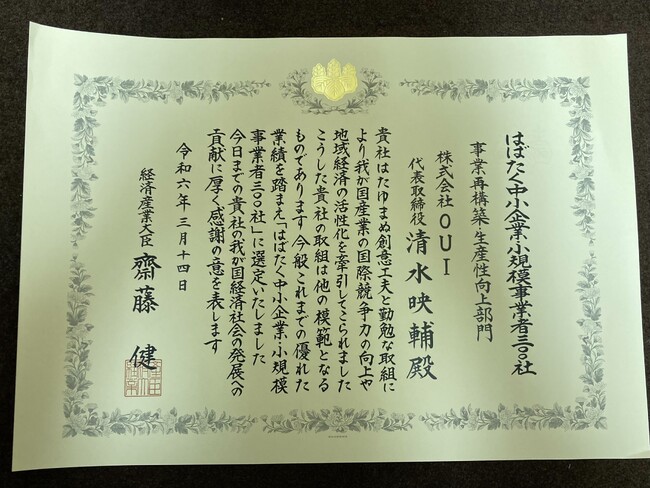 はばたく中小企業・小規模事業者三〇〇社
事業再構築・生産性向上部門
株式会社OUI
代表取締役 清水映輔殿
貴社はたゆまぬ創意工夫と勤勉な取組に
より我が国産業の国際競争力の向上や
地域経済の活性化を牽引してこられました
こうした貴社の取組は他の模範となる
ものであります今般これまでの優れた
業績を踏まえ「はばたく中小企業・小規模
事業者三〇〇社」に選定いたしました
今日までの貴社の我が国経済社会の発展への
貢献に厚く感謝の意を表します
令和六年三月十四日
経済産業大臣 齋藤健